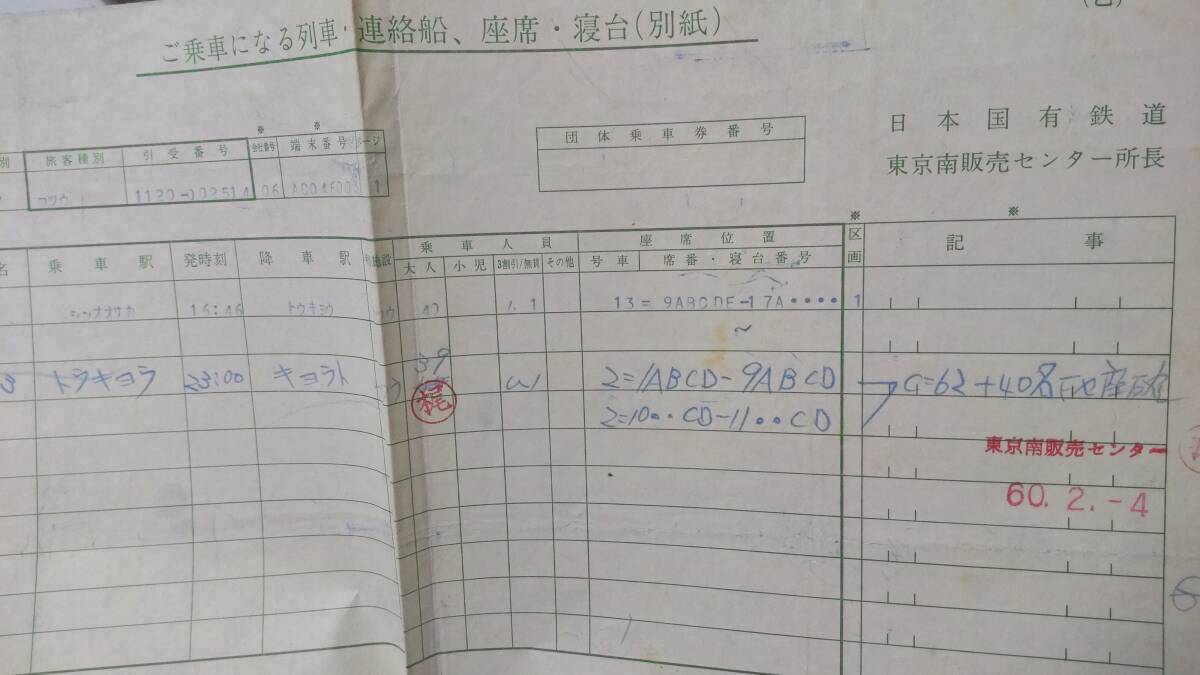 (乙)
ご乗車になる列車・連絡船、座席・寝台(別紙)
日本国有鉄道
東京南販売センター所長
団体乗車券番号
別 旅客種別 引受番号 ※会社番号 ※端末番号 ページ
フツウ 1120-002514 06 1
※ ※
名 乗車駅 発時刻 降車駅 施設 乗車人員 座席位置 区画 記事
大人 小児 3割引/無賃 その他 号車 席番・寝台番号
シンオオサカ 16:46 トウキヨウ ウ 40 1 13= 9ABCDE-17A•••• 1
~
39
3 トウキョウ 23:00 キョウト 2=1ABCD-9ABCD G=62+40名
梶
2=10••CD-11••CD
東京南販売センター
60.2.-4